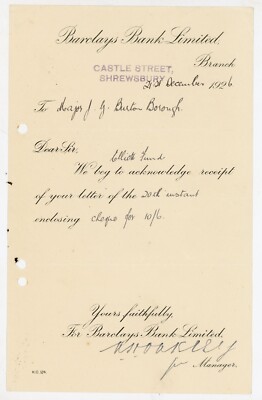 Barclays Bank Limited,
Branch
CASTLE STREET,
SHREWSBURY
21st December 1926
To Major J. G. Burton Borough
Dear Sir,
Elliott Fund
We beg to acknowledge receipt
of your letter of the 20th instant
enclosing cheque for 10/6.
Yours faithfully,
For Barclays Bank Limited,
for Manager.